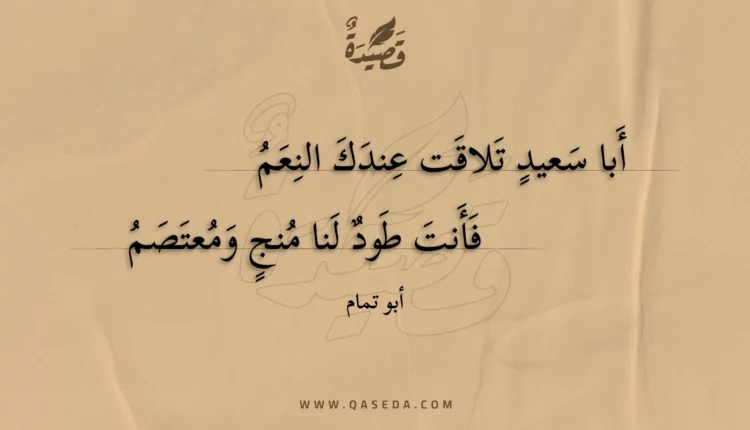 قَصِيدَةٌ
أَبا سَعيدٍ تَلاقَت عِندَكَ النِعَمُ
فَأَنتَ طَودٌ لَنا مُنجٍ وَمُعتَصَمُ
أبو تمام
WWW.QASEDA.COM